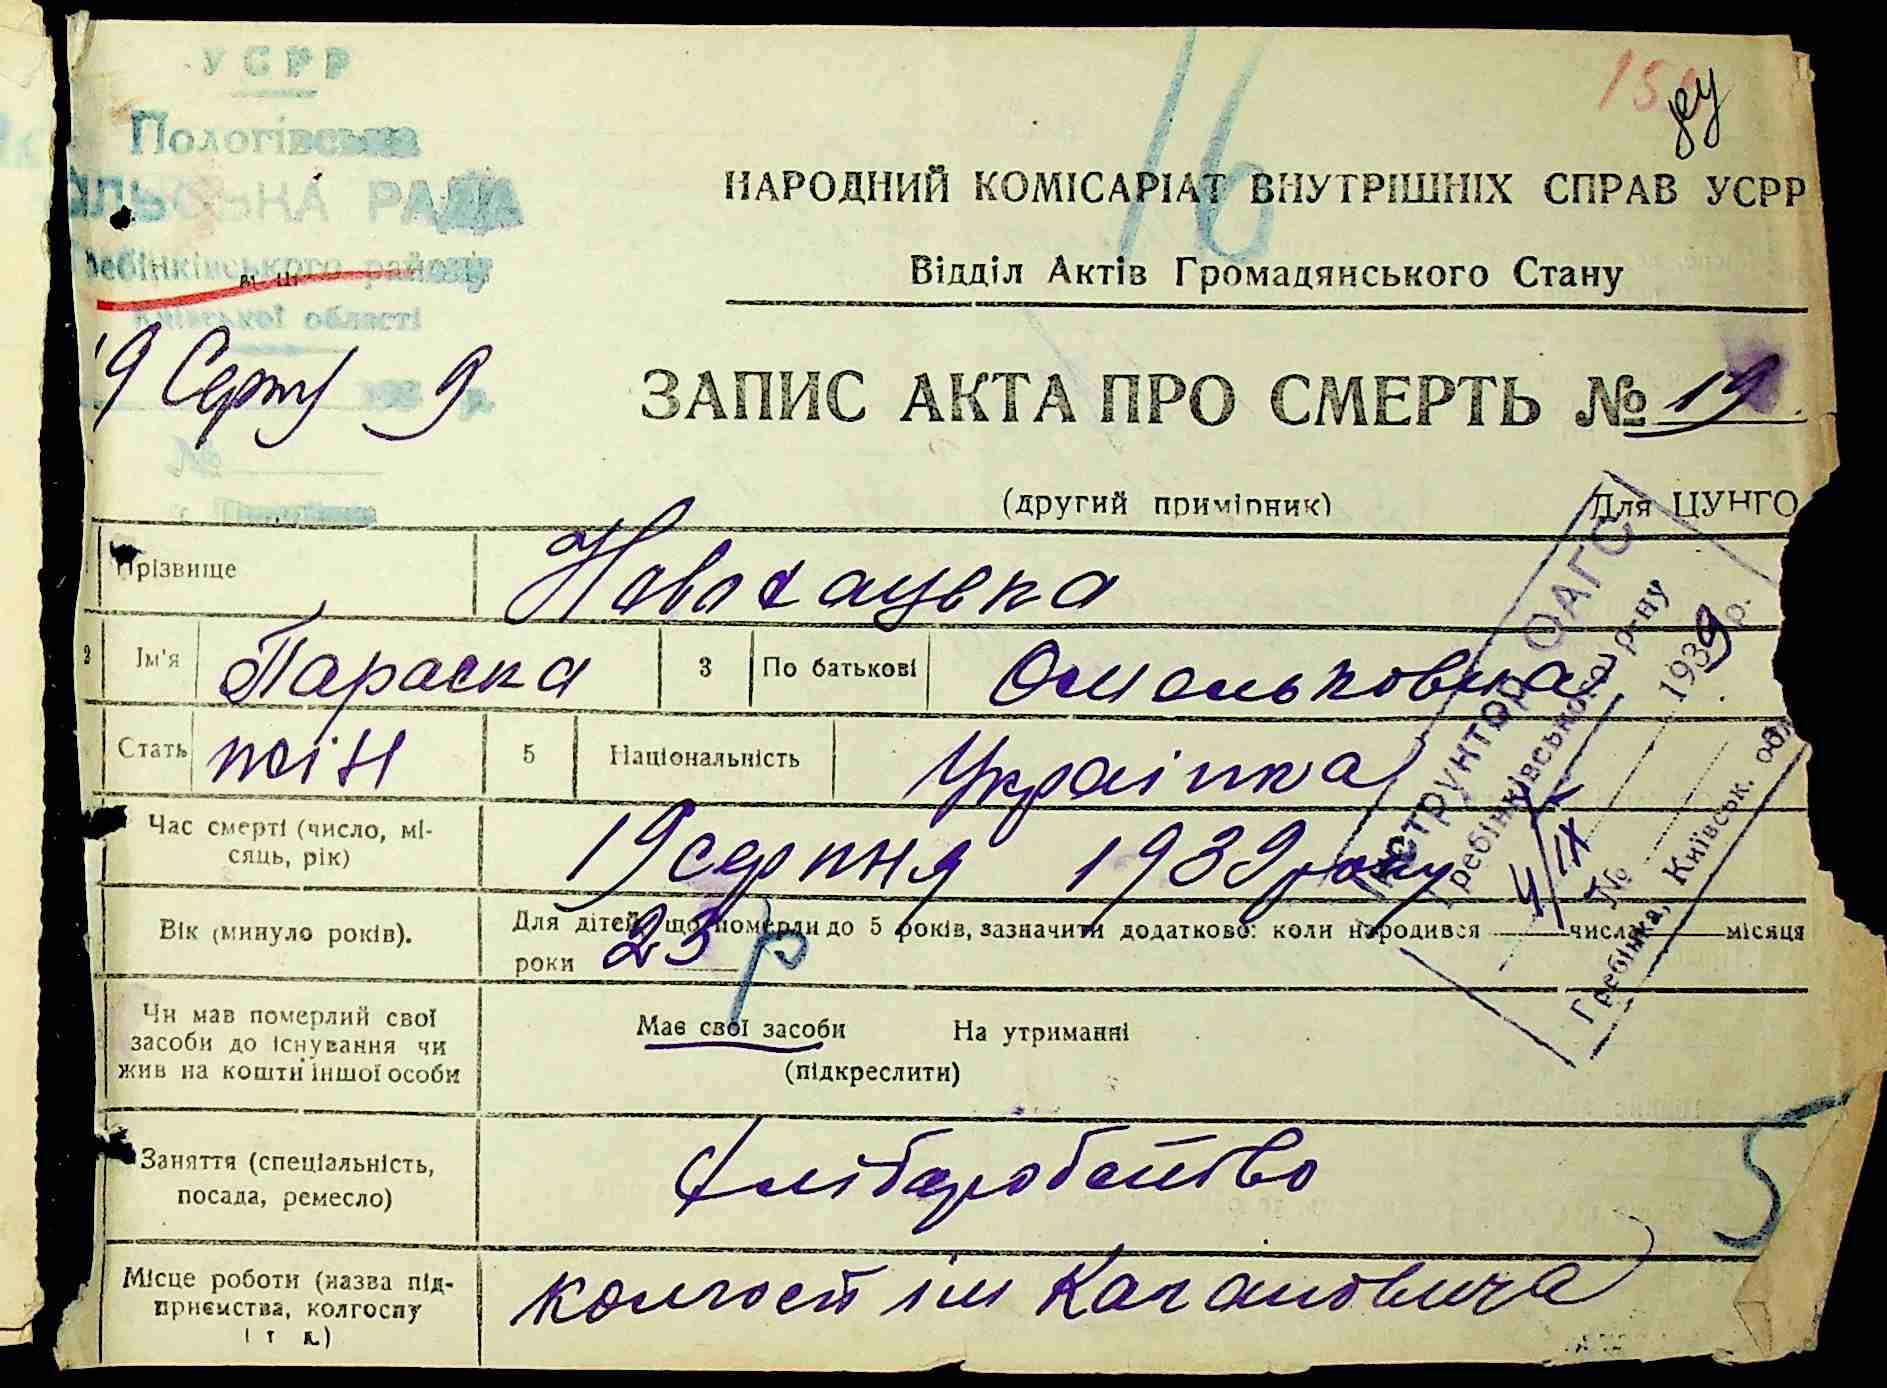 УСРР
Пологівська
ІЛЬСЬКА РАДА
ребінківського району
Київської області
19 Серпу 9 р.
№
16
15
НАРОДНИЙ КОМІСАРІАТ ВНУТРІШНІХ СПРАВ УСРР
Відділ Актів Громадянського Стану
ЗАПИС АКТА ПРО СМЕРТЬ № 19
(другий примірник) Для ЦУНГО
Прізвище
2 Ім'я Параска 3 По батькові Омельковна
Стать жін 5 Національність Українка
Час смерті (число, мі-
сяць, рік) 19 серпня 1939 року
Вік (минуло років). Для дітей, що померли до 5 років, зазначити додатково: коли народився числа місяця
роки 23 р
Чи мав померлий свої
засоби до існування чи
жив на кошти іншої особи
Має свої засоби На утриманні
(підкреслити)
Заняття (спеціальність,
посада, ремесло) хліборобство
Місце роботи (назва під-
приємства, колгоспу
і т д.) колгосп ім Кагановича
5
Інструктор ОАГС
Гребінківського р-ну
4/IX 1939 р.
№
Гребінка, Київськ. обл